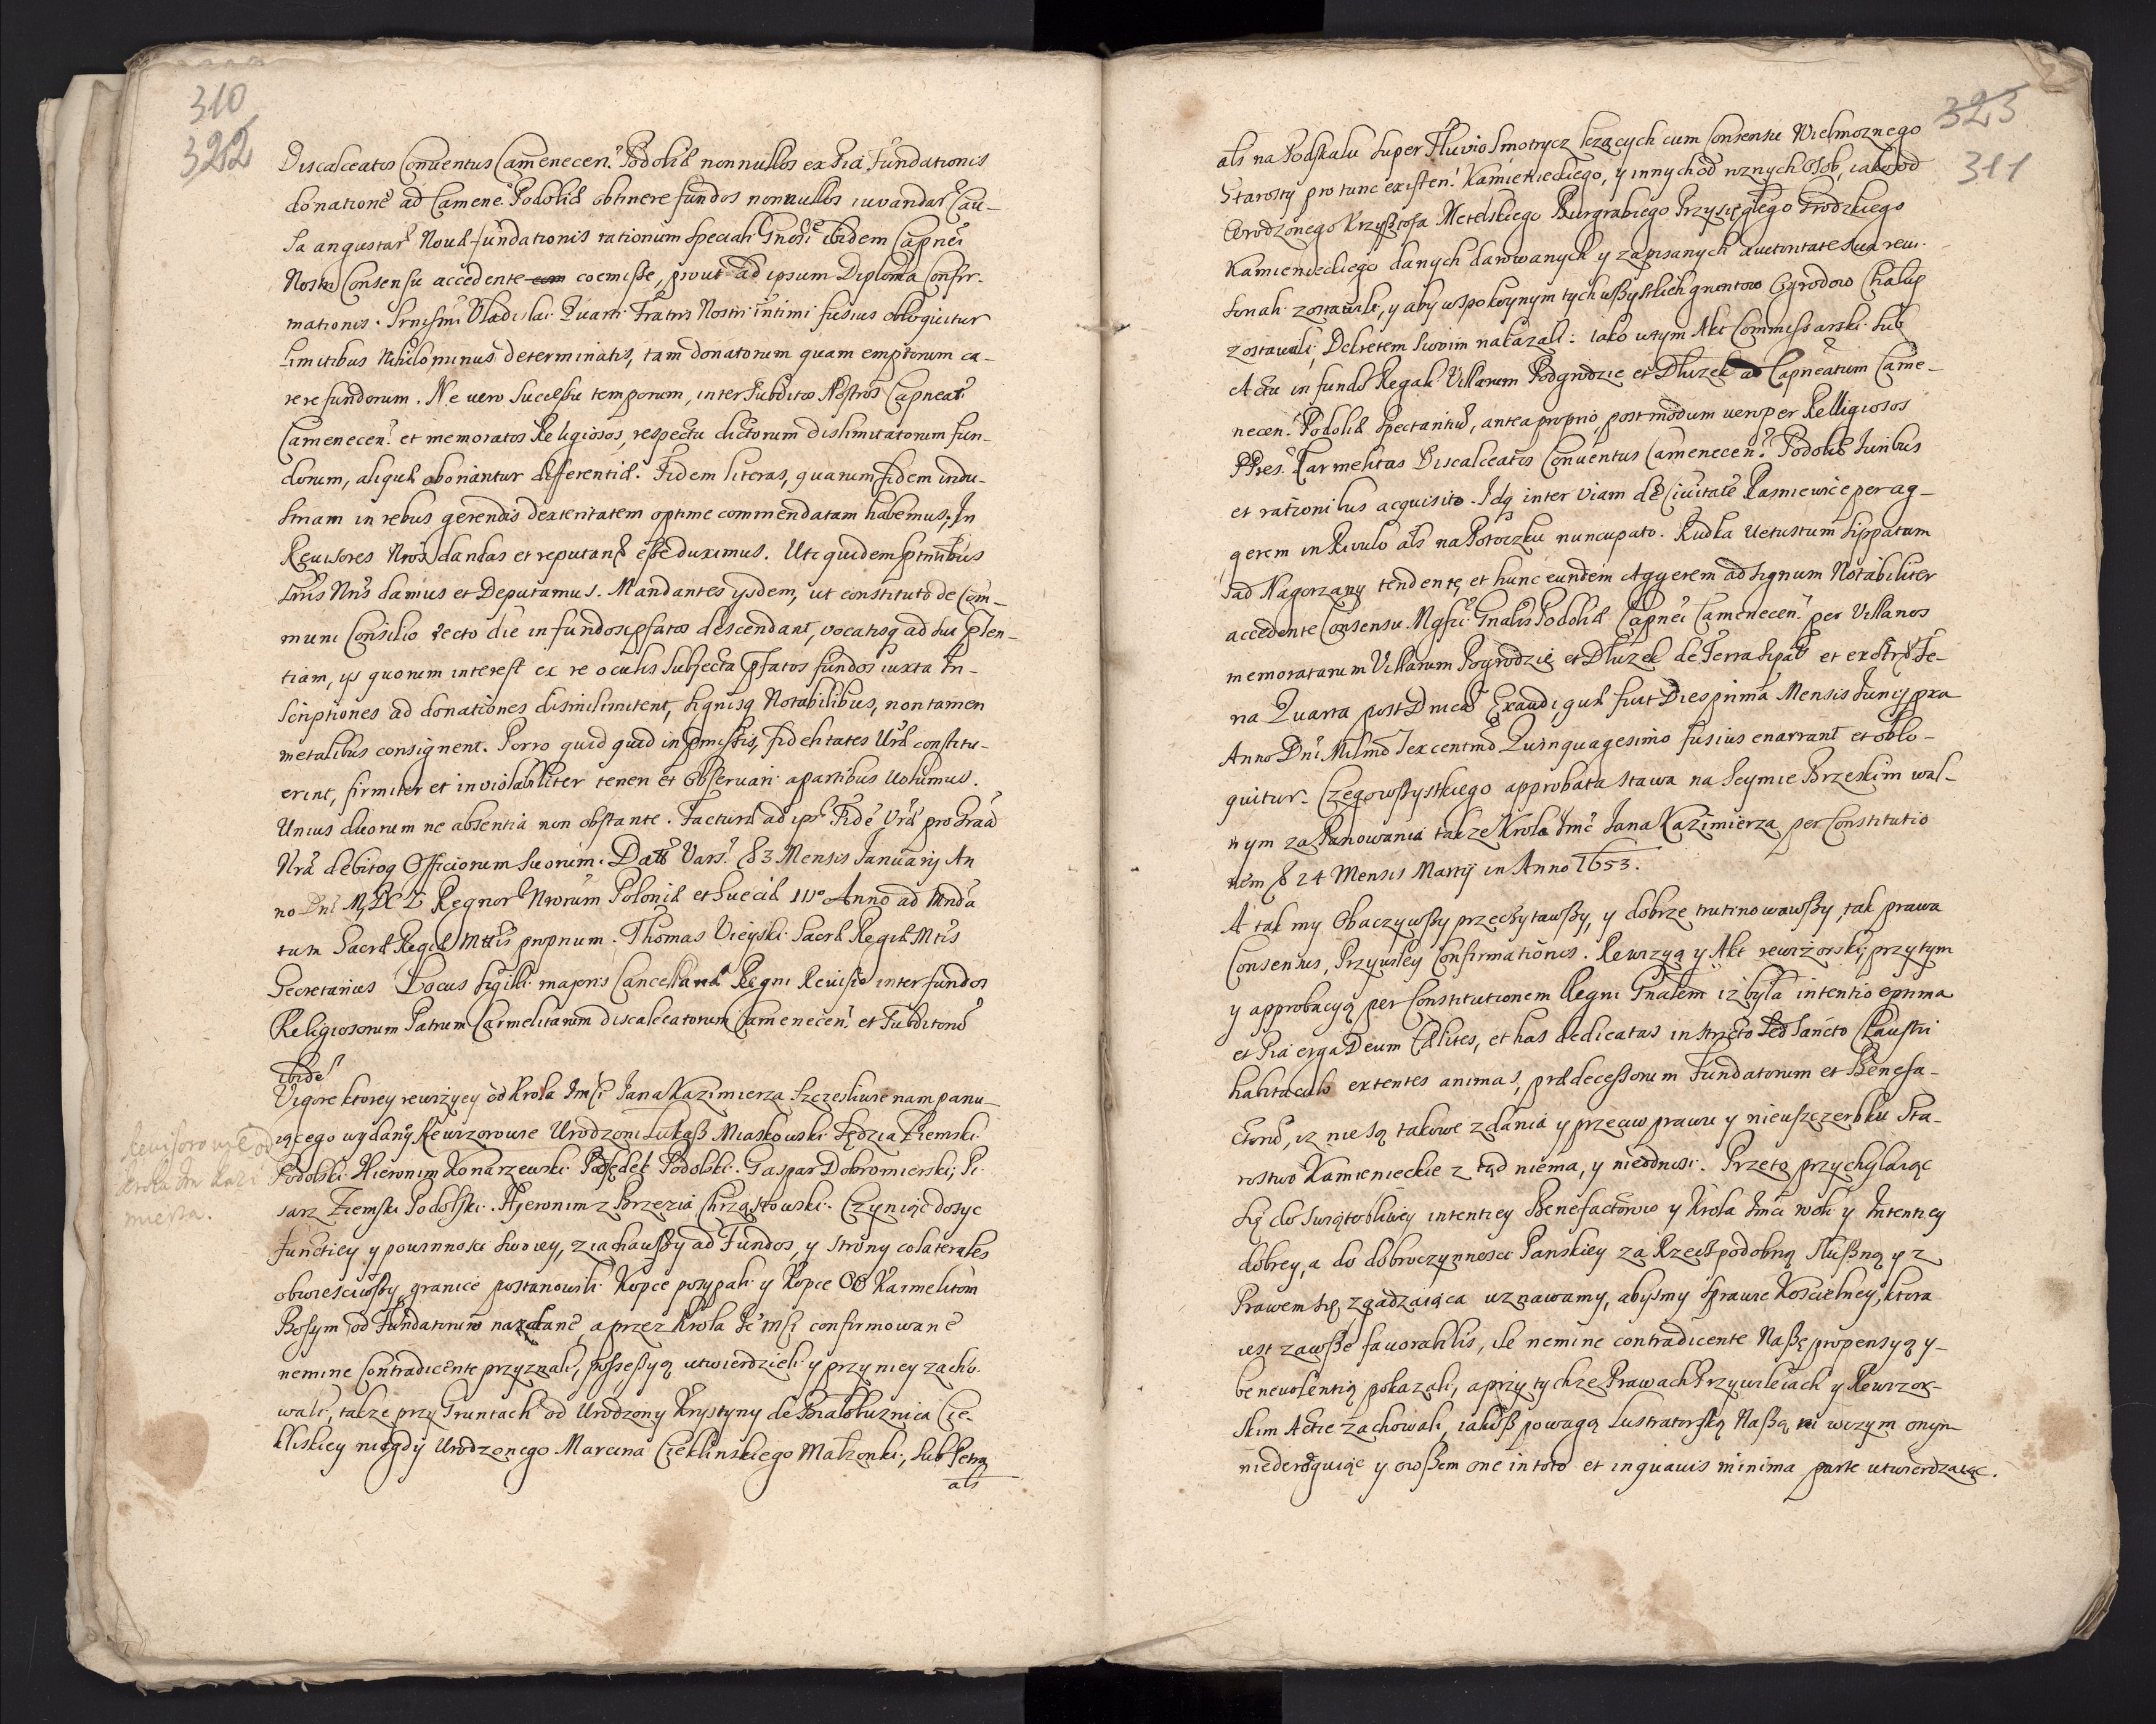 310
322
Discalceatos Conuentus Camenecen. Podoliæ nonnullos ex Pia Fundationis
donatione ad Camene. Podoliæ obtinere fundos nonnullos iuvandar Cau-
sa angustar Nouæ fundationis rationum speciali Gnosi ibidem Capnei
Nostri Consensu accedente coemisse, prout ad ipsum Diploma Confir-
mationis. Srnismi Vladislai Quarti Fratris Nostri intimi fusius obloquitur
limitibus Nihilominus determinatis, tam donatorum quam emptorum ca-
rere fundorum. Ne uero Sucessu temporum, inter Subditos Nostros Capneat
Camenecen. et memoratos Religiosos, respectu dictorum dislimitatorum fun-
dorum, aliquæ oboriantur differentiæ. Fidem literas, quarum fidem indu-
striam in rebus gerendis dexteritatem optime commendatam habemus, In
Reuisores Nros dandas et reputand esse duximus. Uti quidem Pntibus
Lris Nris damus et Deputamus. Mandantes ysdem, ut constituto de Com-
muni Consilio recto die in fundos ipsatos descendant, vocatisq ad sui Psen-
tiam, ys quorum interest ex re oculis Subjecta Psatos fundos iuxta In-
scriptiones ad donationes dismilimitent, signisq Notabilibus, non tamen
metalibus consignent. Porro quid quid in Pmissis, fidelitates Uræ constitu-
erint, firmiter et inviolabiliter teneri et Obseruari a partibus Uolumus.
Unius duorum ne absentia non obstante. Facturæ ad ips Fide Uræ pro Graa
Nra debitoq Officiorum Suorum. Datt Vars. 83 Mensis January An
no Dni MDCL Regnor Nrorum Poloniæ et Sueciæ 111º Anno ad Mnda
tum Sacræ Regiæ Mttis propnum. Thomas Uieyski Sacræ Regiæ Mtis
Secretarius Locus Sigilli majoris Cancellariæ Regni Reuisio inter fundos
Religiosorum Patrum Carmelitarum discalceatorum Camenecen. et Subditorü
ibide
Vigore ktorey rewizyey od Krola Jmści Jana Kazimierza Szczesliwie nam panu-
iącego wydany Rewizorowie Urodzeni Lukasz Miaskowski Sędzia Ziemski
Podolski Hieronim Konarzewski Podsędek Podolski. Gaspar Dobromierski, Pi-
sarz Ziemski Podolski. Hjeronim z Brzezia Chrząstowski. Czyniąc dosyc
functiey y powinnosci swoiey, ziachawszy ad Fundos, y Strony colaterales
obwiesciwszy, granice postanowili Kopce posypali y Kopce OO Karmelitom
Bosym od Fundatorow nadane, a przez Krola Je Mści confirmowane
nemine Contradicente przyznali, possessyą utwierdzieli y przy niey zacho-
wali, takze przy Gruntach od Urodzony Krystyny de Bialobłuznica Cie-
kliskiey niegdy Urodzonego Marcina Cieklinskiego Malzonki, Sub Petra
als
Reuisorowie od
Krola Jm Kazi
mierza.
323
311
als na Podskalu super Fluvio Smotrycz lezących cum Consensu Wielmoznego
Starosty pro tunc existen. Kamienieckiego, y innych od roznych Osob, iako od
Urodzonego Krzysztofa Metelskiego Burgrabiego Przysięglego Grodzkiego
Kamienieckiego danych darowanych y zapisanych autoritate sua reui-
sonali zostawili, y aby w spokoynym tych wszystkich gruntow Ogrodow Chalup
zostawali, Dekretem Swoim nakazali: iako w tym Akt Commissarski Sub
Actu in fundo Regali Villarum Podgrodzie et Dluzek ad Capneatum Came-
necen. Podoliæ spectantiü, antea proprio, post modum uero per Relligiosos
PPres. Karmelitas Discalceatos Conuentus Camenecen. Podoliæ Juribus
et rationibus acquisito. Idq inter viam de Ciuitate Rasniewice per ag-
gerem in Riuulo als na Potoczku nuncupato. Rudka Uetustum Sippatum
ad Nagorzany tendente, et hunc eundem Aggerem ad Signum Notabiliter
accedente Consensu Mgfci Gnalis Podoliæ Capnei Camenecen. per Villanos
memoratarum Villarum Pogrodzie et Dluzek de Terra Sipat et exstrü Fe-
ria Quarta post Dnica Exaudi, quæ fuit Dies prima Mensis Juny pra
Anno Dni Milmo Sexcentmo Quinquagesimo fusius enarrant et oblo-
quitur. Czego wszystkiego approbata stawa na Seymie Brzeskim wal-
nym za Panowania takze Krola Jmc Jana Kazimierza per Constitutio
nem 8 24 Mensis Martij in Anno 1653.
A tak my Obaczywszy przeczytawszy, y dobrze trutinowawszy, tak prawa
Consensus, Przywiley Confirmationis. Rewizyą y Akt rewizorski, przytym
y approbacyą per Constitutionem Regni Gnalem iz była intentio optima
et Pia erga Deum Cælites, et has dedicatas in stricto sed Sancto Claustri
habitaculo extentes animas, prædecessorum Fundatorum et Benefa-
ctorü, iz nie są takowe zdania y przeciw prawu y nieuszczerbku Sta-
rostwo Kamienieckie z tąd niema, y nieodnosi. Przeto przychylaiąc
się do Swiątobliwey intentiey Benefactorow y Krola Jmci woli y Intentiey
dobrey, a do dobroczynnosci Panskiey za Rzecz podobną Słuszną y z
Prawem Się zgadzaiąca uznawamy, abysmy sprawie Koscielney, ktora
iest zawsze fauorabilis, ile nemine contradicente Naszę propensyą y-
beneuolentią pokazali, a przy tychze Prawach Przywileiach y Rewizor-
skim Actie zachowali, iakosz powagą Lustratorską Naszą ni wczym onym
niederoguiąc y owszem one in toto et in quauis minima parte utwierdzaiąc.